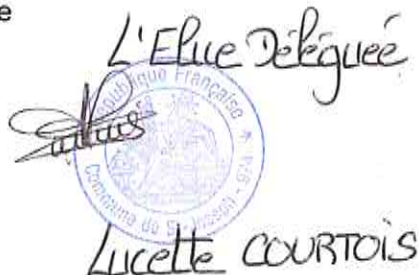 e
L'Elue Déléguée
République Française
Commune de St Joseph - 974
Lucette COURTOIS